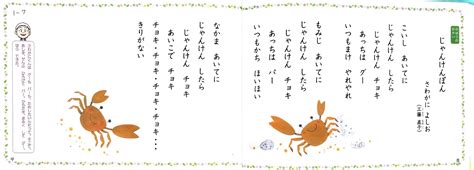 じゃんけんぽん
さわがに よしお
(工藤 直子)
こいし あいてに
じゃんけん したら
じゃんけん チョキ
あっちは グー
いつもまけ やれやれ
もみじ あいてに
じゃんけん したら
じゃんけん チョキ
あっちは パー
いつもかち ほいほい
なかま あいてに
じゃんけん したら
じゃんけん チョキ
あいこで チョキ
チョキ・チョキ・チョキ・・・
きりがない
1-7